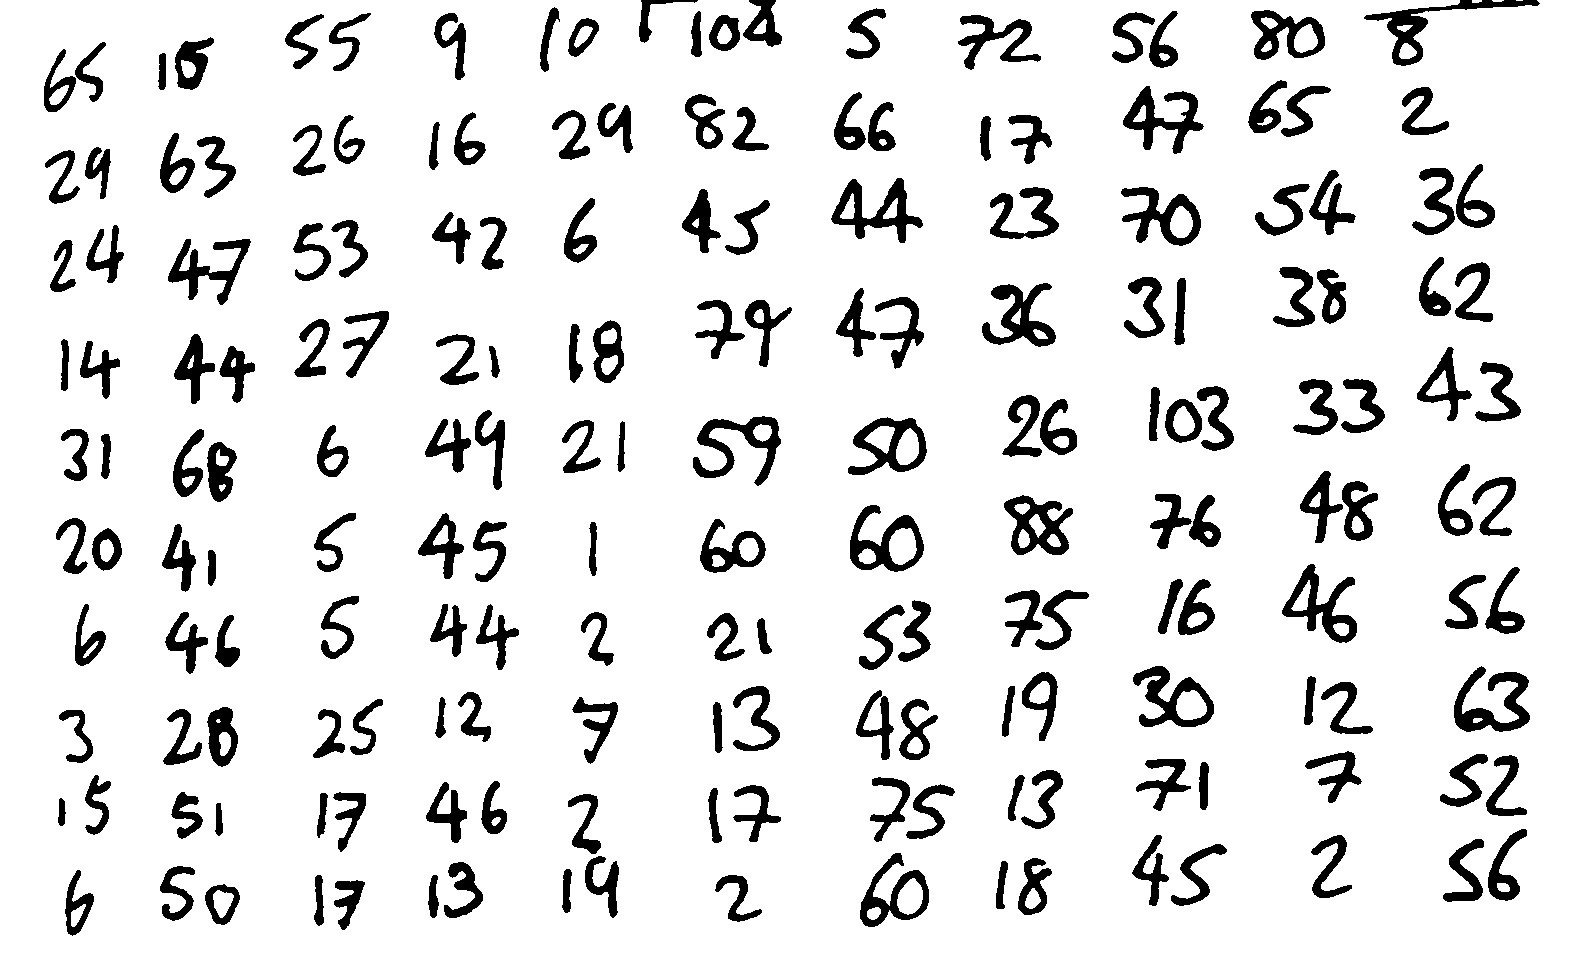 65 15 55 9 10 104 5 72 56 80 8
29 63 26 16 29 82 66 17 47 65 2
24 47 53 42 6 45 44 23 70 54 36
14 44 27 21 18 79 47 36 31 38 62
31 68 6 49 21 59 50 26 103 33 43
20 41 5 45 1 60 60 88 76 48 62
6 46 5 44 2 21 53 75 16 46 56
3 28 25 12 7 13 48 19 30 12 63
15 51 17 46 2 17 75 13 71 7 52
6 50 17 13 19 2 60 18 45 2 56